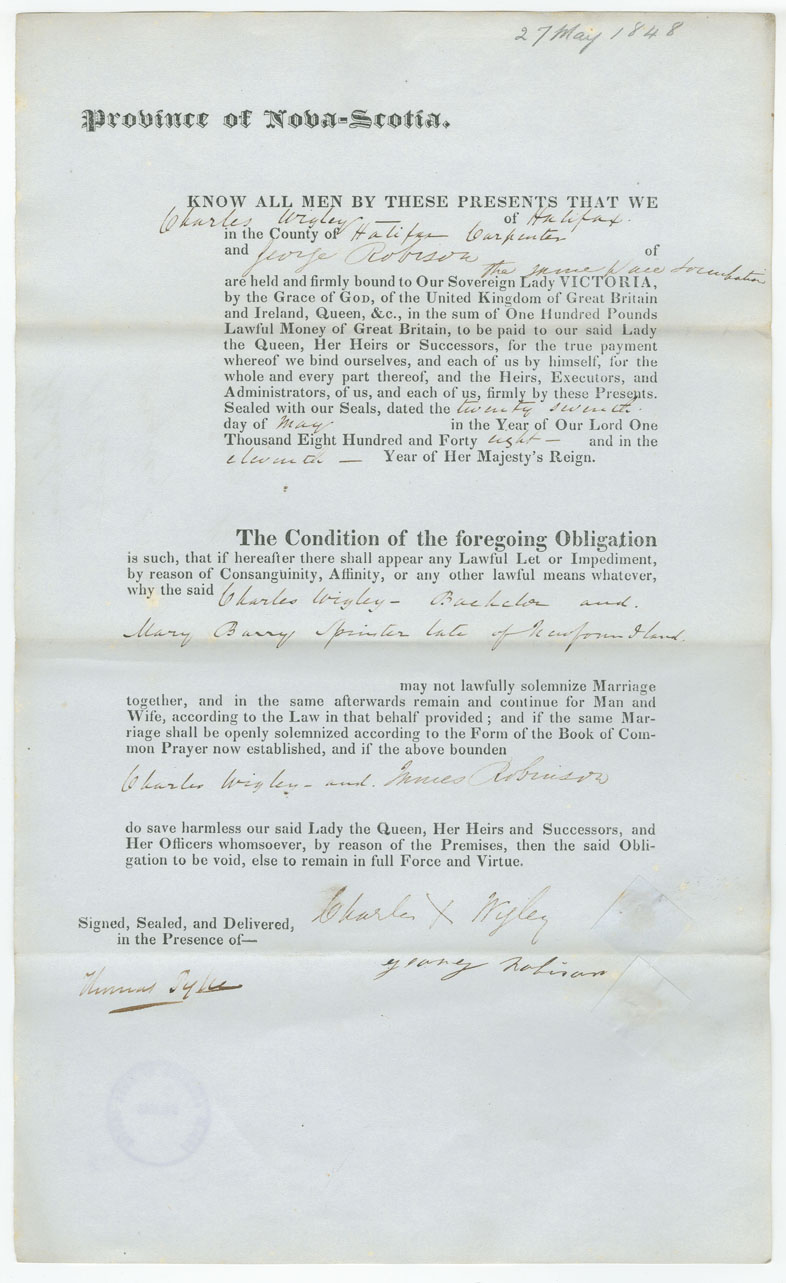 27 May 1848
Province of Nova-Scotia.
KNOW ALL MEN BY THESE PRESENTS THAT WE
Charles Wigley of Halifax.
in the County of Halifax Carpenter
and George Robison of
the same place & occupation
are held and firmly bound to Our Sovereign Lady VICTORIA,
by the Grace of GOD, of the United Kingdom of Great Britain
and Ireland, Queen, &c., in the sum of One Hundred Pounds
Lawful Money of Great Britain, to be paid to our said Lady
the Queen, Her Heirs or Successors, for the true payment
whereof we bind ourselves, and each of us by himself, for the
whole and every part thereof, and the Heirs, Executors, and
Administrators, of us, and each of us, firmly by these Presents.
Sealed with our Seals, dated the twenty seventh.
day of May in the Year of Our Lord One
Thousand Eight Hundred and Forty eight — and in the
eleventh — Year of Her Majesty's Reign.
The Condition of the foregoing Obligation
is such, that if hereafter there shall appear any Lawful Let or Impediment,
by reason of Consanguinity, Affinity, or any other lawful means whatever,
why the said Charles Wigley - Bachelor and.
Mary Barry Spinster late of Newfoundland.
may not lawfully solemnize Marriage
together, and in the same afterwards remain and continue for Man and
Wife, according to the Law in that behalf provided; and if the same Mar-
riage shall be openly solemnized according to the Form of the Book of Com-
mon Prayer now established, and if the above bounden
Charles Wigley - and. James Robinson
do save harmless our said Lady the Queen, Her Heirs and Successors, and
Her Officers whomsoever, by reason of the Premises, then the said Obli-
gation to be void, else to remain in full Force and Virtue.
Signed, Sealed, and Delivered,
in the Presence of—
Charles X Wigley
Thomas